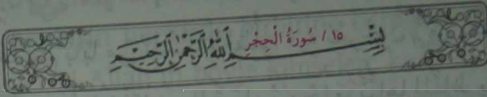 ١٥ / سُورَةُ الْحِجْرِ
بِسْمِ اللَّهِ الرَّحْمَٰنِ الرَّحِيمِ